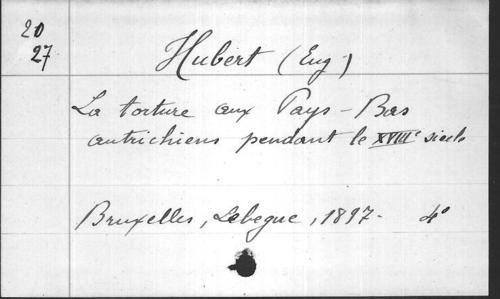 20
27
Hubert (Eug.)
La torture aux Pays-Bas
autrichiens pendant le XVIIIe siècle
Bruxelles, Lebegue, 1897. 4°